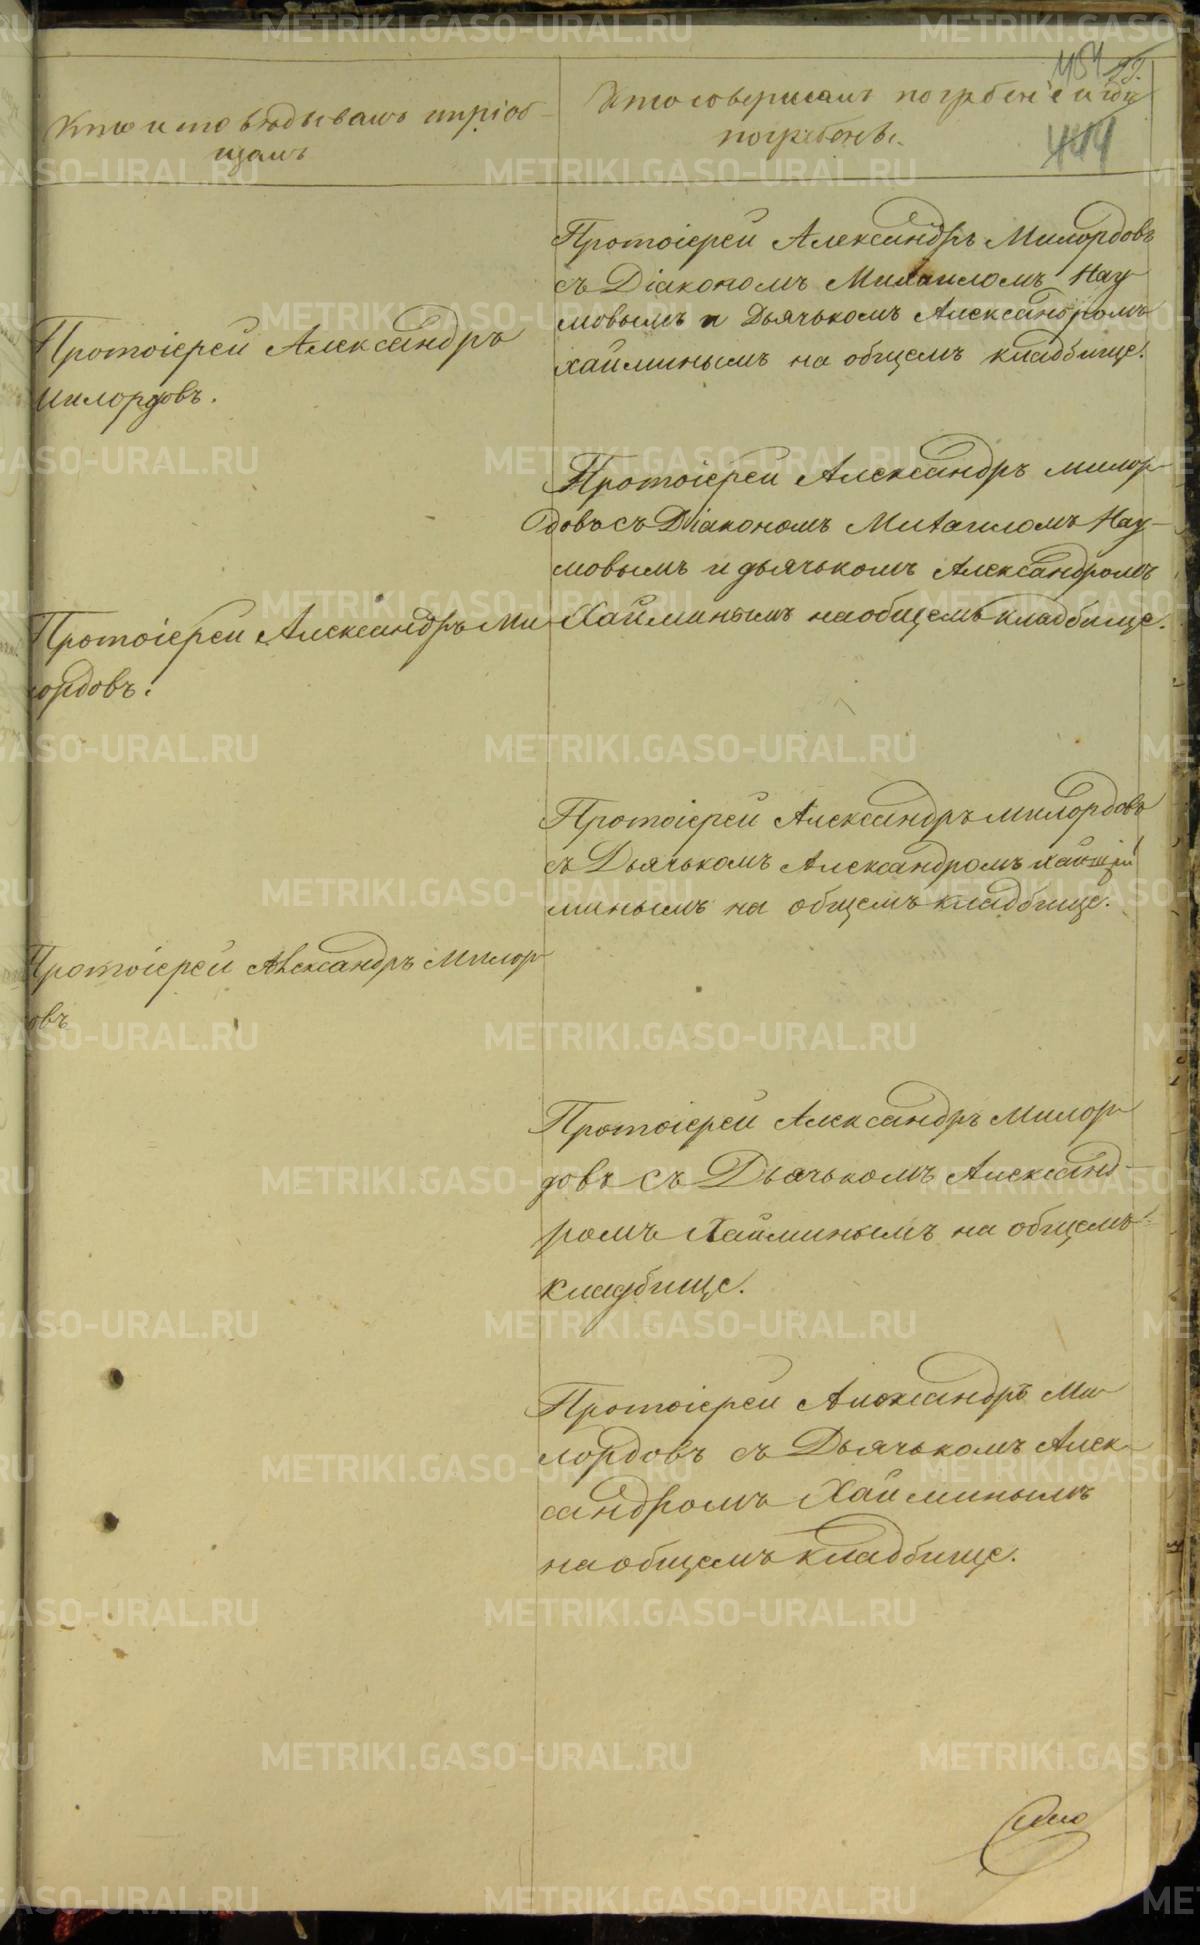 454
444
Кто исповѣдывалъ и пріоб-
щалъ
Кто совершалъ погребеніе и гдѣ
погребены.
Протоіерей Александръ Милордовъ
съ Діакономъ Михаиломъ Нау
мовымъ и Дьячькомъ Александромъ
Хайминымъ на общемъ кладбище.
Протоіерей Александръ
Милордовъ.
Протоіерей Александръ Милор-
довъ съ Діакономъ Михаиломъ Нау-
мовымъ и дьячькомъ Александромъ
Хайминымъ на общемъ кладбище.
Протоіерей Александръ Ми
лордовъ.
Протоіерей Александръ Милордовъ
съ Дьячькомъ Александромъ Хай
минымъ на общемъ кладбище.
Протоіерей Александръ Милор-
овъ
Протоіерей Александръ Милор-
довъ съ Дьячькомъ Александ-
ромъ Хайминымъ на общемъ
кладбище.
Протоіерей Александръ Ми-
лордовъ съ Дьячькомъ Алек-
сандромъ Хайминымъ
на общемъ кладбище.
METRIKI.GASO-URAL.RU